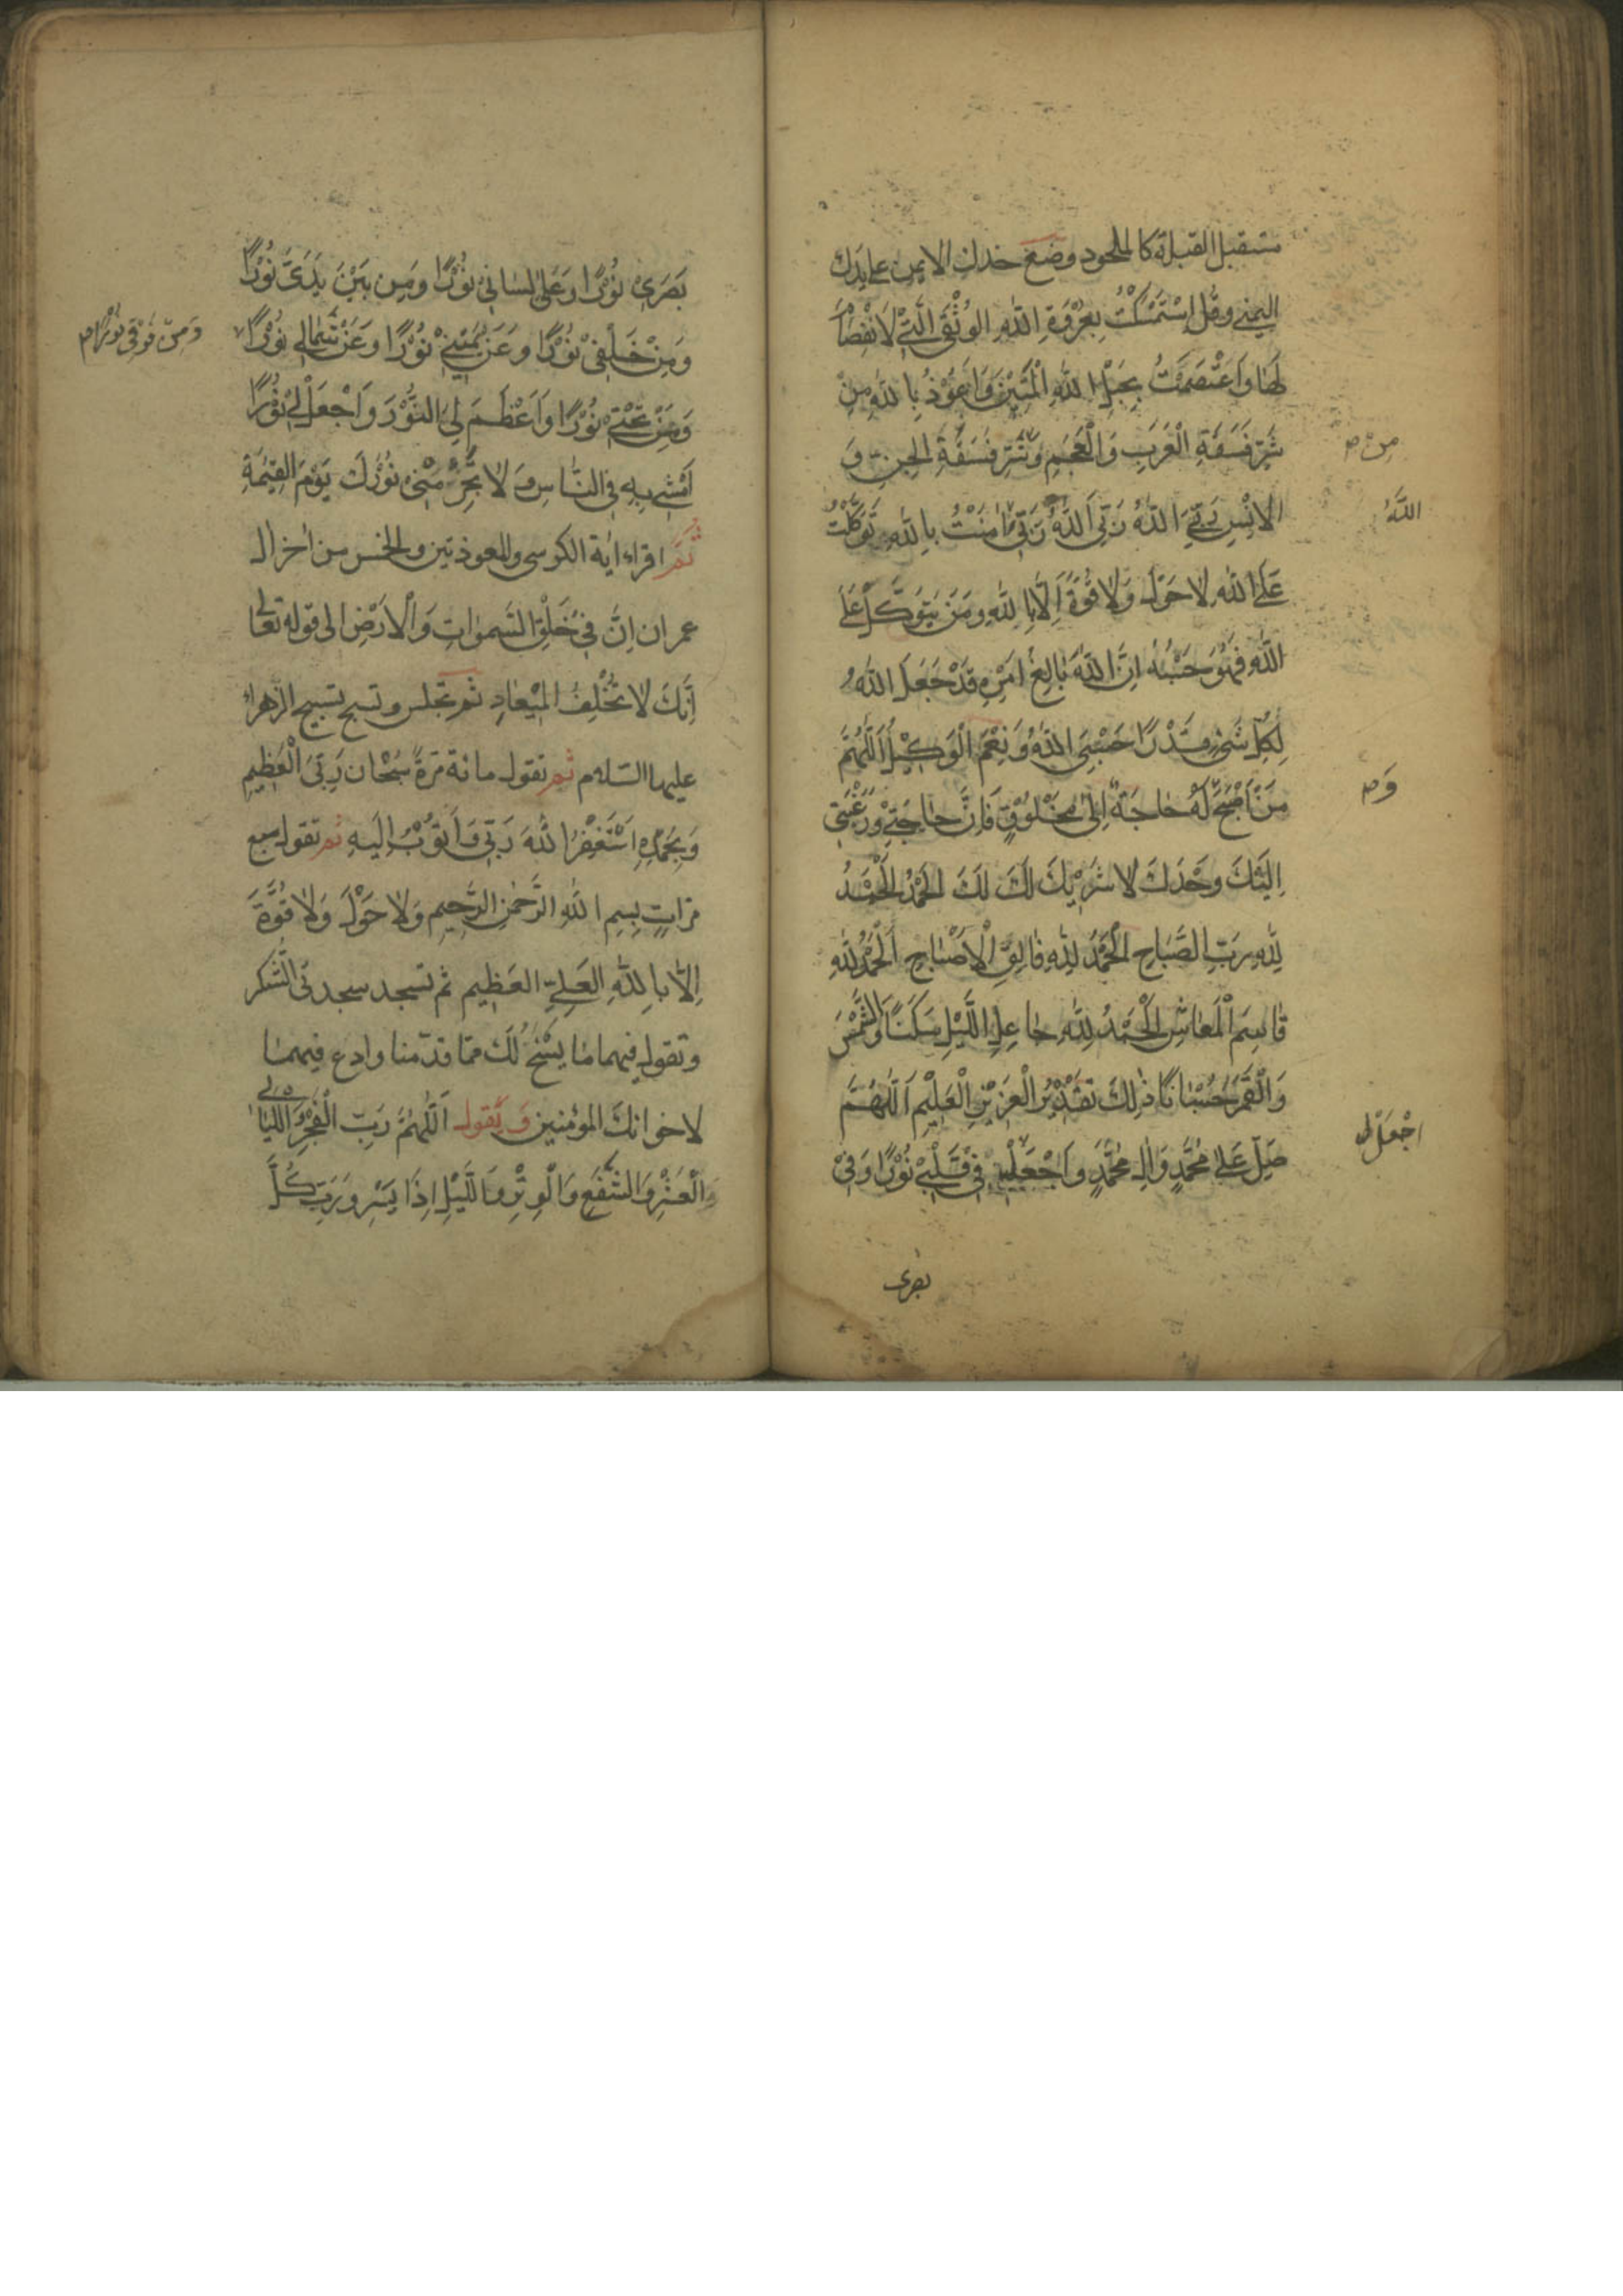 مستقبل القبلة كالملحود وضع خدك الايمن على يدك
اليمنى وقل اِسْتَمْسَكْتُ بِعُرْوَةِ اللهِ الوُثْقَى الَّتِي لَا نْفِصَامَ
لَهَا وَاعْتَصَمْتُ بِحَبْلِ اللهِ الْمَتِيْنِ وَاَعُوْذُ بِاللهِ مِنْ
شَرِّ فَسَقَةِ الْعَرَبِ وَالْعَجَمِ وَشَرِّ فَسَقَةِ الْجِنِّ وَ
مِنْ ص
الْاِنْسِ رَبِّيَ اللهُ رَبِّيَ اللهُ رَبِّي اٰمَنْتُ بِاللهِ تَوَكَّلْتُ
اللهُ
عَلَى اللهِ لَا حَوْلَ وَلَا قُوَّةَ اِلَّا بِاللهِ وَمَنْ يَتَوَكَّلْ عَلَى
اللهِ فَهُوَ حَسْبُهُ اِنَّ اللهَ بَالِغُ اَمْرِهِ قَدْ جَعَلَ اللهُ
لِكُلِّ شَيْءٍ قَدْرًا حَسْبِيَ اللهُ وَنِعْمَ الْوَكِيْلُ اَللّٰهُمَّ
مَنْ اَصْبَحَ لَهُ حَاجَةٌ اِلٰى مَخْلُوْقٍ فَاِنَّ حَاجَتِيْ وَرَغْبَتِي
وَ ص
اِلَيْكَ وَحْدَكَ لَا شَرِيْكَ لَكَ لَكَ الْحَمْدُ الْحَمْدُ
لِلّٰهِ رَبِّ الصَّبَاحِ الْحَمْدُ لِلّٰهِ فَالِقِ الْاَصْبَاحِ اَلْحَمْدُ لِلّٰهِ
قَاسِمِ الْمَعَاشِ الْحَمْدُ لِلّٰهِ جَاعِلِ اللَّيْلِ سَكَنًا وَالشَّمْسَ
وَالْقَمَرَ حُسْبَانًا ذٰلِكَ تَقْدِيْرُ الْعَزِيْزِ الْعَلِيْمِ اَللّٰهُمَّ
صَلِّ عَلٰى مُحَمَّدٍ وَاٰلِ مُحَمَّدٍ وَاجْعَلْ فِيْ قَلْبِيْ نُوْرًا وَفِيْ
اجْعَلْ لى
بصرى
بَصَرِيْ نُوْرًا وَعَلٰى لِسَانِيْ نُوْرًا وَمِنْ بَيْنِ يَدَيَّ نُوْرًا
وَمِنْ خَلْفِيْ نُوْرًا وَعَنْ يَمِيْنِيْ نُوْرًا وَعَنْ شِمَالِي نُوْرًا
وَمِنْ فَوْقِي نُوْرًا ص
وَمِنْ تَحْتِيْ نُوْرًا وَاَعْظِمْ لِيَ النُّوْرَ وَاجْعَلْ لِيْ نُوْرًا
اَمْشِي بِهِ فِي النَّاسِ وَلَا تَحْرِمْنِي نُوْرَكَ يَوْمَ الْقِيٰمَةِ
ثم اقراء اية الكرسى والمعوذتين والخمس من اخر ال
عمران اِنَّ فِي خَلْقِ السَّمٰوَاتِ وَالْاَرْضِ الى قوله تعالى
اِنَّكَ لَا تُخْلِفُ الْمِيْعَادَ ثم تجلس وتسبح تسبيح الزهراء
عليها السلام ثم تقول مائة مرة سُبْحَانَ رَبِّيَ الْعَظِيْمِ
وَبِحَمْدِهِ اَسْتَغْفِرُ اللهَ رَبِّي وَاَتُوْبُ اِلَيْهِ ثم تقول سبع
مرات بِسْمِ اللهِ الرَّحْمٰنِ الرَّحِيْمِ وَلَا حَوْلَ وَلَا قُوَّةَ
اِلَّا بِاللهِ الْعَلِيِّ الْعَظِيْمِ ثم تسجد سجدتى الشكر
وتقول فيهما ما يسنح لك مما قدمنا وادع فيهما
لاخوانك المؤمنين وَيَقول اَللّٰهُمَّ رَبَّ الْفَجْرِ وَاللَّيَالِي
وَالْعَشْرِ وَالشَّفْعِ وَالْوِتْرِ وَاللَّيْلِ اِذَا يَسْرِ وَرَبَّ كُلِّ